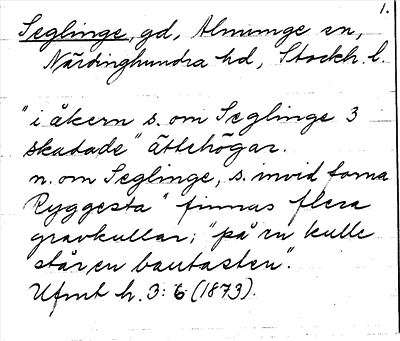 1.
Seglinge, gd, Almunge sn,
Närdinghundra hd, Stockh. l.
"i åkern s. om Seglinge 3
skadade" ättehögar.
n. om Seglinge, s. invid forna
Ryggesta "finnas flera
gravkullar; "på en kulle
står en bautasten".
Ufmt h. 3: 6 (1873).